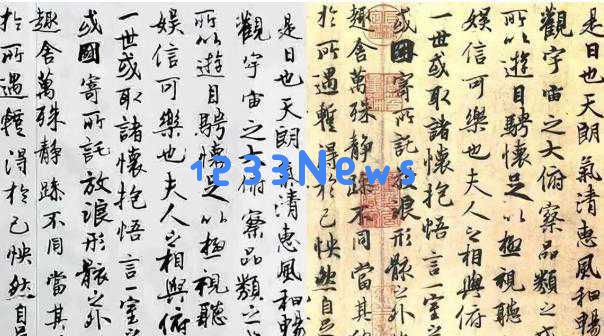 是日也天朗氣清惠風和暢
觀宇宙之大俯察品類之
所以遊目騁懷足以極視聽
娛信可樂也夫人之相與俯
一世或取諸懷抱悟言一室
或因寄所託放浪形骸之外
趣舍萬殊靜躁不同當其
於所遇暫得於己怏然自
是日也天朗氣清惠風和暢
觀宇宙之大俯察品類之
所以遊目騁懷足以極視聽
娛信可樂也夫人之相與俯
一世或取諸懷抱悟言一室
或因寄所託放浪形骸之外
趣舍萬殊靜躁不同當其
於所遇暫得於己怏然自
1233News